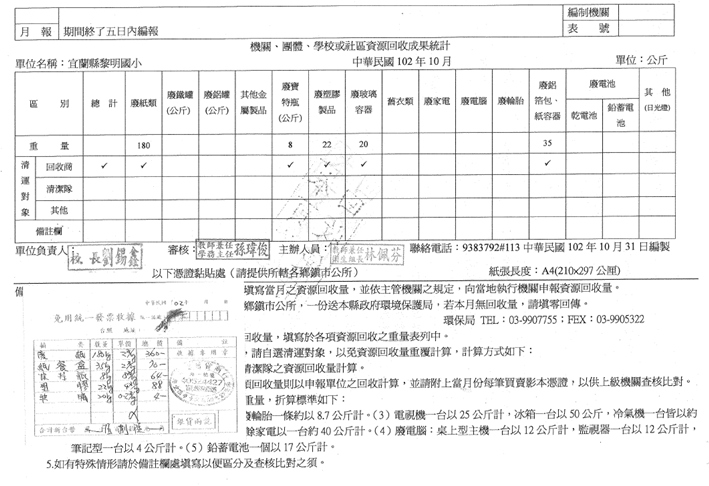 編制機關
月報 期間終了五日內編報 表號
機關、團體、學校或社區資源回收成果統計
單位名稱:宜蘭縣黎明國小 中華民國 102 年 10 月 單位:公斤
區別 總計 廢紙類 廢鐵罐(公斤) 廢鋁罐(公斤) 其他金屬製品 廢寶特瓶(公斤) 廢塑膠製品 廢玻璃容器 舊衣類 廢家電 廢電腦 廢輪胎 廢鋁箔包,紙容器 廢電池 乾電池 鉛蓄電池 其他(日光燈)
重量 180 8 22 20 35
清運對象 回收商 ✓ ✓ ✓ ✓ ✓ ✓
清潔隊
其他
備註欄
單位負責人: 校長劉錫鑫 審核: 教師兼任學務主任孫瑋俊 主辦人員: 教師兼任衛生組長林佩芬 聯絡電話:9383792#113 中華民國 102 年 10 月 31 日編製
以下憑證黏貼處(請提供所轄各鄉鎮市公所) 紙張長度:A4(210x297 公厘)
備
填寫當月之資源回收量,並依主管機關之規定,向當地執行機關申報資源回收量。
鄉鎮市公所,一份送本縣政府環境保護局,若本月無回收量,請填零回傳。
環保局 TEL:03-9907755;FEX:03-9905322
回收量,填寫於各項資源回收之重量表列中。
,請自選清運對象,以免資源回收量重覆計算,計算方式如下:
清潔隊之資源回收量計算。
項回收量則以申報單位之回收計算,並請附上當月份每筆買賣影本憑證,以供上級機關查核比對。
重量,折算標準如下:
廢輪胎一條約以 8.7 公斤計。(3)電視機一台以 25 公斤計,冰箱一台以 50 公斤,冷氣機一台皆以約
餘家電以一台約 40 公斤計。(4)廢電腦:桌上型主機一台以 12 公斤計,監視器一台以 12 公斤計,
筆記型一台以 4 公斤計。(5)鉛蓄電池一個以 17 公斤計。
5.如有特殊情形請於備註欄處填寫以便區分及查核比對之須。
中華民國 102 年 月 日
免用統一發票收據
品名 數量 單價 總價 備註
銀貨兩訖
合計總台幣